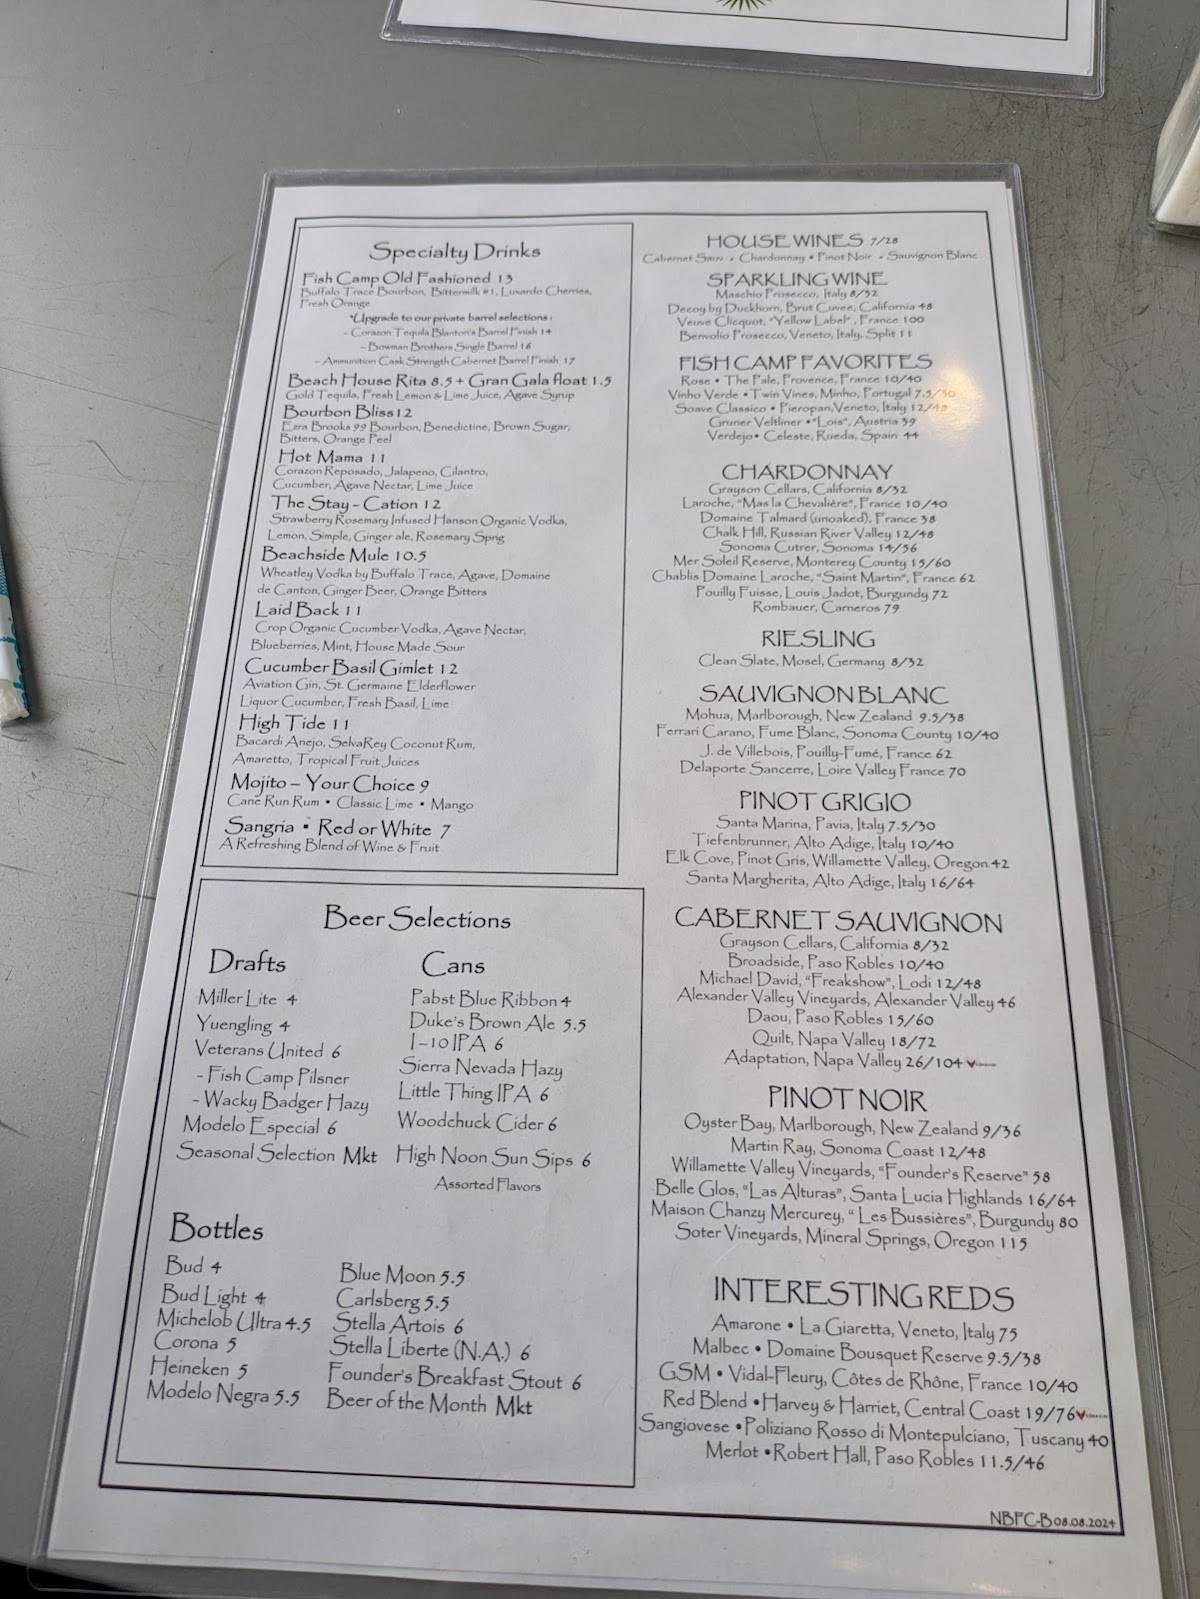 Specialty Drinks
Fish Camp Old Fashioned 13
Buffalo Trace Bourbon, Bittermilk #1, Luxardo Cherries,
Fresh Orange
*Upgrade to our private barrel selections:
- Corazon Tequila Blanton's Barrel Finish 14
- Bowman Brothers Single Barrel 16
- Ammunition Cask Strength Cabernet Barrel Finish 17
Beach House Rita 8.5 + Gran Gala float 1.5
Gold Tequila, Fresh Lemon & Lime Juice, Agave Syrup
Bourbon Bliss 12
Ezra Brooks 99 Bourbon, Benedictine, Brown Sugar,
Bitters, Orange Peel
Hot Mama 11
Corazon Reposado, Jalapeno, Cilantro,
Cucumber, Agave Nectar, Lime Juice
The Stay - Cation 12
Strawberry Rosemary Infused Hanson Organic Vodka,
Lemon, Simple, Ginger ale, Rosemary Sprig
Beachside Mule 10.5
Wheatley Vodka by Buffalo Trace, Agave, Domaine
de Canton, Ginger Beer, Orange Bitters
Laid Back 11
Crop Organic Cucumber Vodka, Agave Nectar,
Blueberries, Mint, House Made Sour
Cucumber Basil Gimlet 12
Aviation Gin, St. Germaine Elderflower
Liquor Cucumber, Fresh Basil, Lime
High Tide 11
Bacardi Anejo, SelvaRey Coconut Rum,
Amaretto, Tropical Fruit Juices
Mojito – Your Choice 9
Cane Run Rum • Classic Lime • Mango
Sangria • Red or White 7
A Refreshing Blend of Wine & Fruit
Beer Selections
Drafts
Miller Lite 4
Yuengling 4
Veterans United 6
- Fish Camp Pilsner
- Wacky Badger Hazy
Modelo Especial 6
Seasonal Selection Mkt
Cans
Pabst Blue Ribbon 4
Duke's Brown Ale 5.5
I-10 IPA 6
Sierra Nevada Hazy
Little Thing IPA 6
Woodchuck Cider 6
High Noon Sun Sips 6
Assorted Flavors
Bottles
Bud 4
Bud Light 4
Michelob Ultra 4.5
Corona 5
Heineken 5
Modelo Negra 5.5
Blue Moon 5.5
Carlsberg 5.5
Stella Artois 6
Stella Liberte (N.A.) 6
Founder's Breakfast Stout 6
Beer of the Month Mkt
HOUSE WINES 7/28
Cabernet Sauv • Chardonnay • Pinot Noir • Sauvignon Blanc
SPARKLING WINE
Maschio Prosecco, Italy 8/32
Decoy by Duckhorn, Brut Cuvee, California 48
Veuve Clicquot, "Yellow Label", France 100
Benvolio Prosecco, Veneto, Italy, Split 11
FISH CAMP FAVORITES
Rose • The Pale, Provence, France 10/40
Vinho Verde • Twin Vines, Minho, Portugal 7.5/30
Soave Classico • Pieropan, Veneto, Italy 12/48
Gruner Veltliner • "Lois", Austria 39
Verdejo • Celeste, Rueda, Spain 44
CHARDONNAY
Grayson Cellars, California 8/32
Laroche, "Mas la Chevalière", France 10/40
Domaine Talmard (unoaked), France 38
Chalk Hill, Russian River Valley 12/48
Sonoma Cutrer, Sonoma 14/56
Mer Soleil Reserve, Monterey County 15/60
Chablis Domaine Laroche, "Saint Martin", France 62
Pouilly Fuisse, Louis Jadot, Burgundy 72
Rombauer, Carneros 79
RIESLING
Clean Slate, Mosel, Germany 8/32
SAUVIGNON BLANC
Mohua, Marlborough, New Zealand 9.5/38
Ferrari Carano, Fume Blanc, Sonoma County 10/40
J. de Villebois, Pouilly-Fumé, France 62
Delaporte Sancerre, Loire Valley France 70
PINOT GRIGIO
Santa Marina, Pavia, Italy 7.5/30
Tiefenbrunner, Alto Adige, Italy 10/40
Elk Cove, Pinot Gris, Willamette Valley, Oregon 42
Santa Margherita, Alto Adige, Italy 16/64
CABERNET SAUVIGNON
Grayson Cellars, California 8/32
Broadside, Paso Robles 10/40
Michael David, "Freakshow", Lodi 12/48
Alexander Valley Vineyards, Alexander Valley 46
Daou, Paso Robles 15/60
Quilt, Napa Valley 18/72
Adaptation, Napa Valley 26/104
PINOT NOIR
Oyster Bay, Marlborough, New Zealand 9/36
Martin Ray, Sonoma Coast 12/48
Willamette Valley Vineyards, "Founder's Reserve" 58
Belle Glos, "Las Alturas", Santa Lucia Highlands 16/64
Maison Chanzy Mercurey, " Les Bussières", Burgundy 80
Soter Vineyards, Mineral Springs, Oregon 115
INTERESTING REDS
Amarone • La Giaretta, Veneto, Italy 75
Malbec • Domaine Bousquet Reserve 9.5/38
GSM • Vidal-Fleury, Côtes de Rhône, France 10/40
Red Blend • Harvey & Harriet, Central Coast 19/76
Sangiovese • Poliziano Rosso di Montepulciano, Tuscany 40
Merlot • Robert Hall, Paso Robles 11.5/46
NBFC-B 08.08.2024